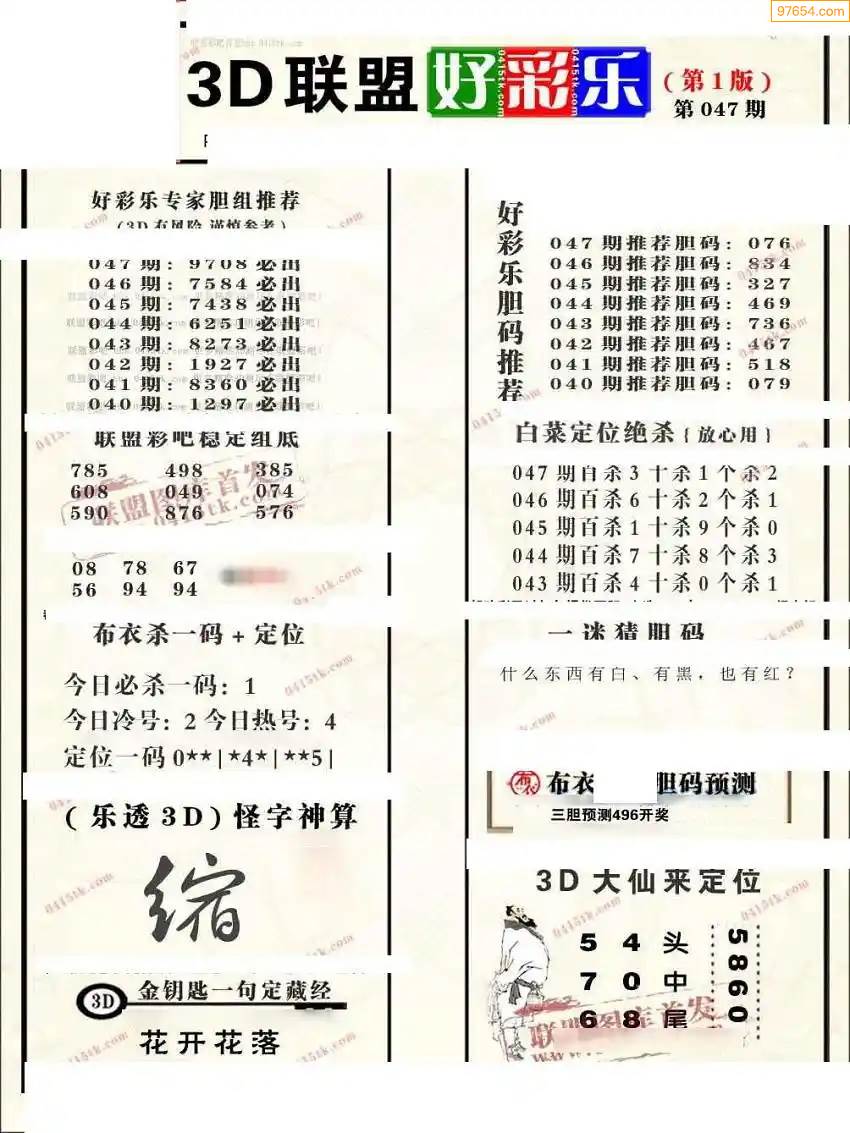 97654.com
3D联盟好彩乐(第1版)
第047期
好彩乐专家胆组推荐
(3D有风险 谨慎参考)
047期：9708必出
046期：7584必出
045期：7438必出
044期：6251必出
043期：8273必出
042期：1927必出
041期：8360必出
040期：1297必出
联盟彩吧稳定组底
785 498 385
608 049 074
590 876 576
联盟图库首发
0415tk.com
08 78 67
56 94 94
布衣杀一码+定位
今日必杀一码：1
今日冷号：2 今日热号：4
定位一码0**|*4*|**5|
(乐透3D)怪字神算
缩
3D 金钥匙一句定藏经
花开花落
好彩乐胆码推荐
047期推荐胆码：076
046期推荐胆码：834
045期推荐胆码：327
044期推荐胆码：469
043期推荐胆码：736
042期推荐胆码：467
041期推荐胆码：518
040期推荐胆码：079
白菜定位绝杀{放心用}
047期百杀3十杀1个杀2
046期百杀6十杀2个杀1
045期百杀1十杀9个杀0
044期百杀7十杀8个杀3
043期百杀4十杀0个杀1
一迷猜胆码
什么东西有白、有黑，也有红？
布衣 布衣 胆码预测
三胆预测496开奖
3D大仙来定位
5 4 头
7 0 中
6 8 尾
5860
联盟图库首发